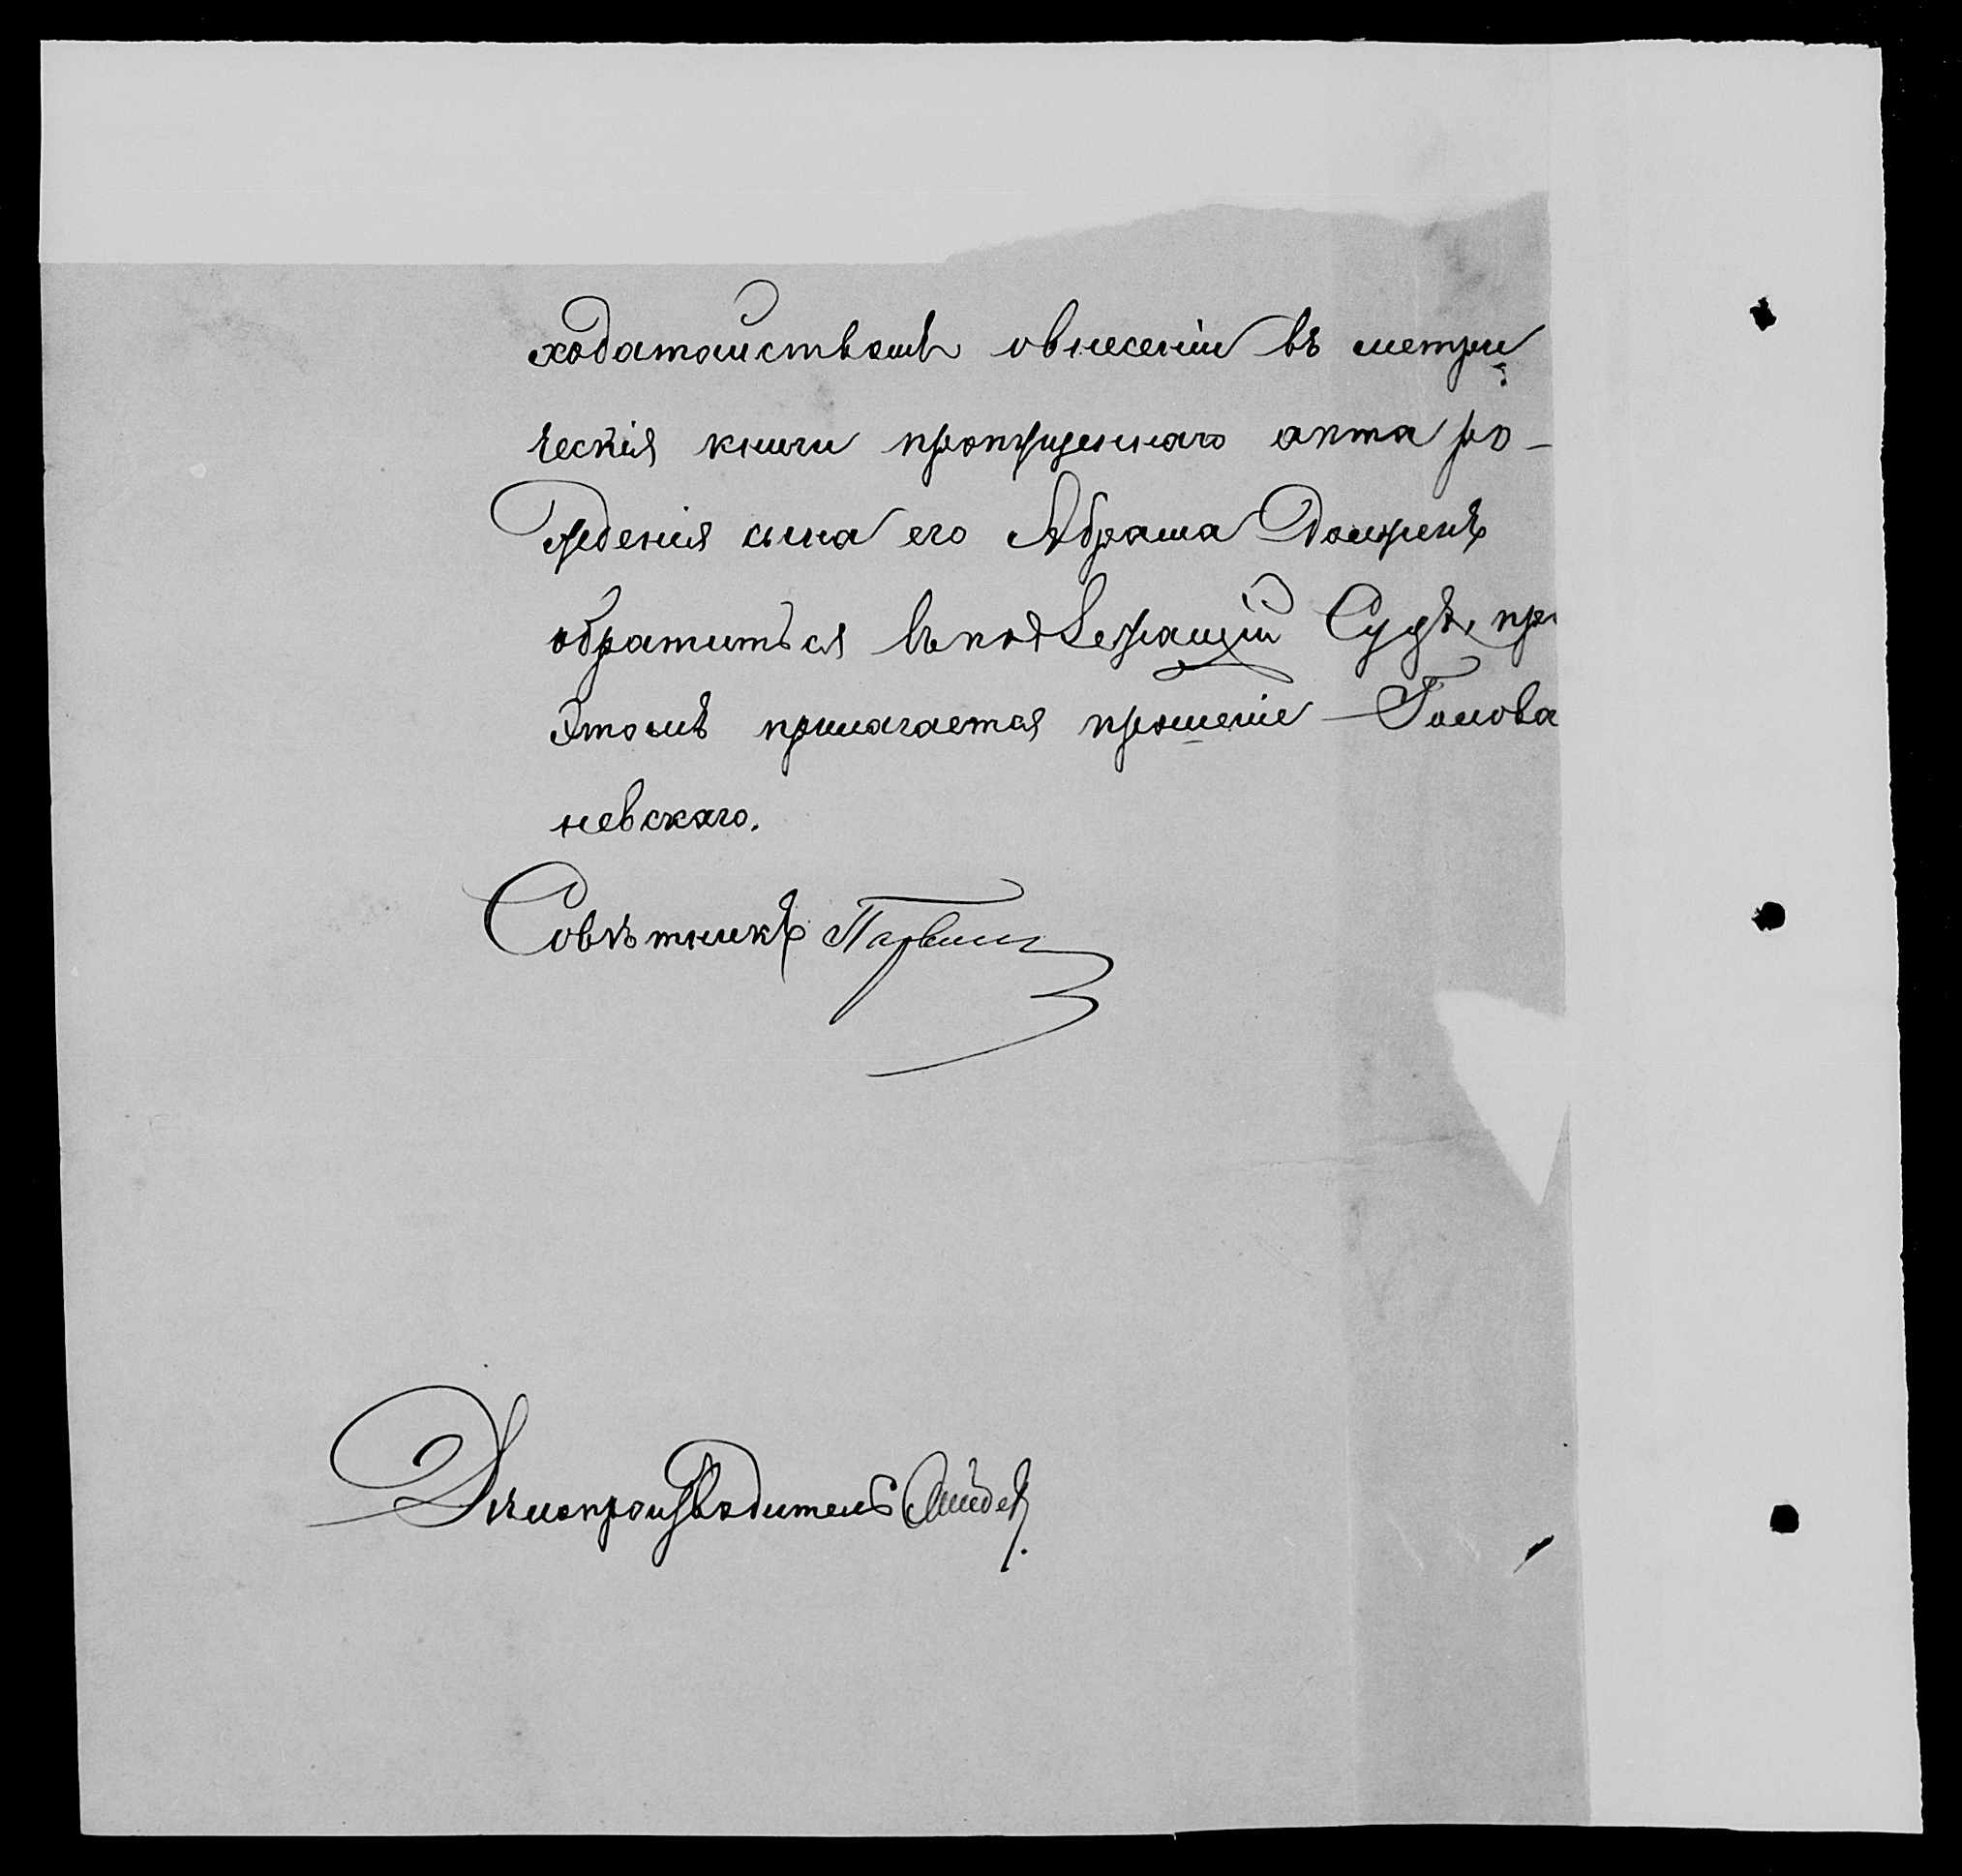 ходатайствомъ о внесеніи въ метри
ческія книги пропущеннаго акта ро-
жденія сына его Абрама долженъ
обратиться въ подлежащій Судъ, при
этомъ прилагается прошеніе Голова
невскаго.
Совѣтникъ
Дѣлопроизводитель